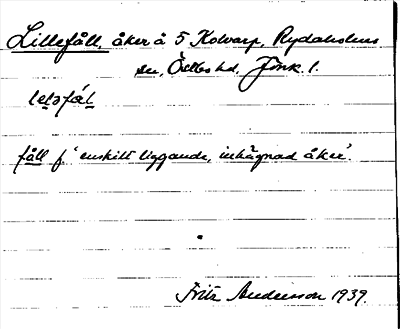 Lillefåll, åker å 5 Kolvarp, Rydaholms
sn, Östbo hd, Jönk. l.
lɛləfål
fåll f. 'enskilt liggande, inhägnad åker'.
Fritz Andersson 1939.